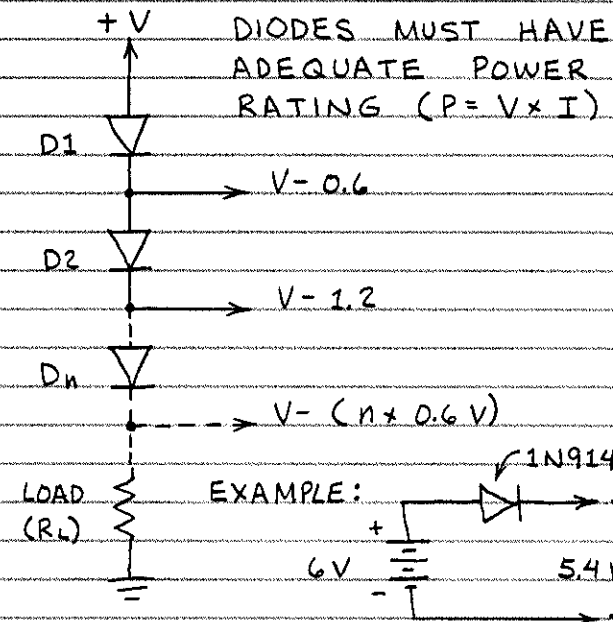 + V
DIODES MUST HAVE
ADEQUATE POWER
RATING (P = V × I)
D1
V - 0.6
D2
V - 1.2
Dn
V - (n × 0.6 V)
1N914
LOAD
(RL)
EXAMPLE:
+
6V
-
5.4 V